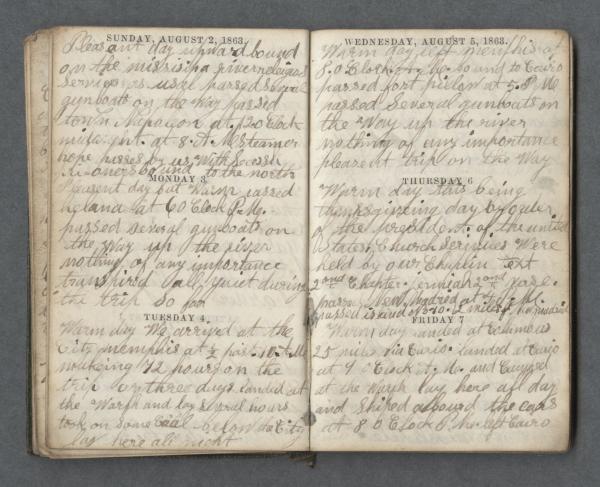 SUNDAY, AUGUST 2, 1863.
Pleasant day upward bound
on the missisipa river religious
servises as usual passed several
gunboats on the way passed
town Napoleon at 12 O Clock
at 8 A M Steamer
hope passes by us With Secesh
bound to the north
MONDAY 3
Pleasent day but Warm passed
helana at 6 O Clock P. M.
passed several gunboats on
the Way up the river
nothing of any importance
transpired all quiet during
the trip so far
TUESDAY 4
Warm day We arrived at the
City memphis at ½ past 10 A M
making 72 hours on the
trip or three days landed at
the Warfh and lay several hours
took on some Coal below the City
lay here all night
WEDNESDAY, AUGUST 5, 1863.
Warm day left memphis at
8 O Clock A. M. bound to Cairo
passed fort pielow at 5 P M
passed Several gunboats on
the Way up the river
nothing of any importance
pleasent trip on the Way
THURSDAY 6
Warm day this being
thanksgiveing day by order
of the president of the united
States Church Servises Were
held by our Chaplin text
2nd Chapter Jermiah 2nd
passed New madrid at
passed island No 10
FRIDAY 7
Warm day landed at
25 miles via Cairo landed at Cairo
at 9 O Clock A. M. and
at the Warfh lay here all day
and shiped abourd the cars
at 8 O Clock P. M. left Cairo